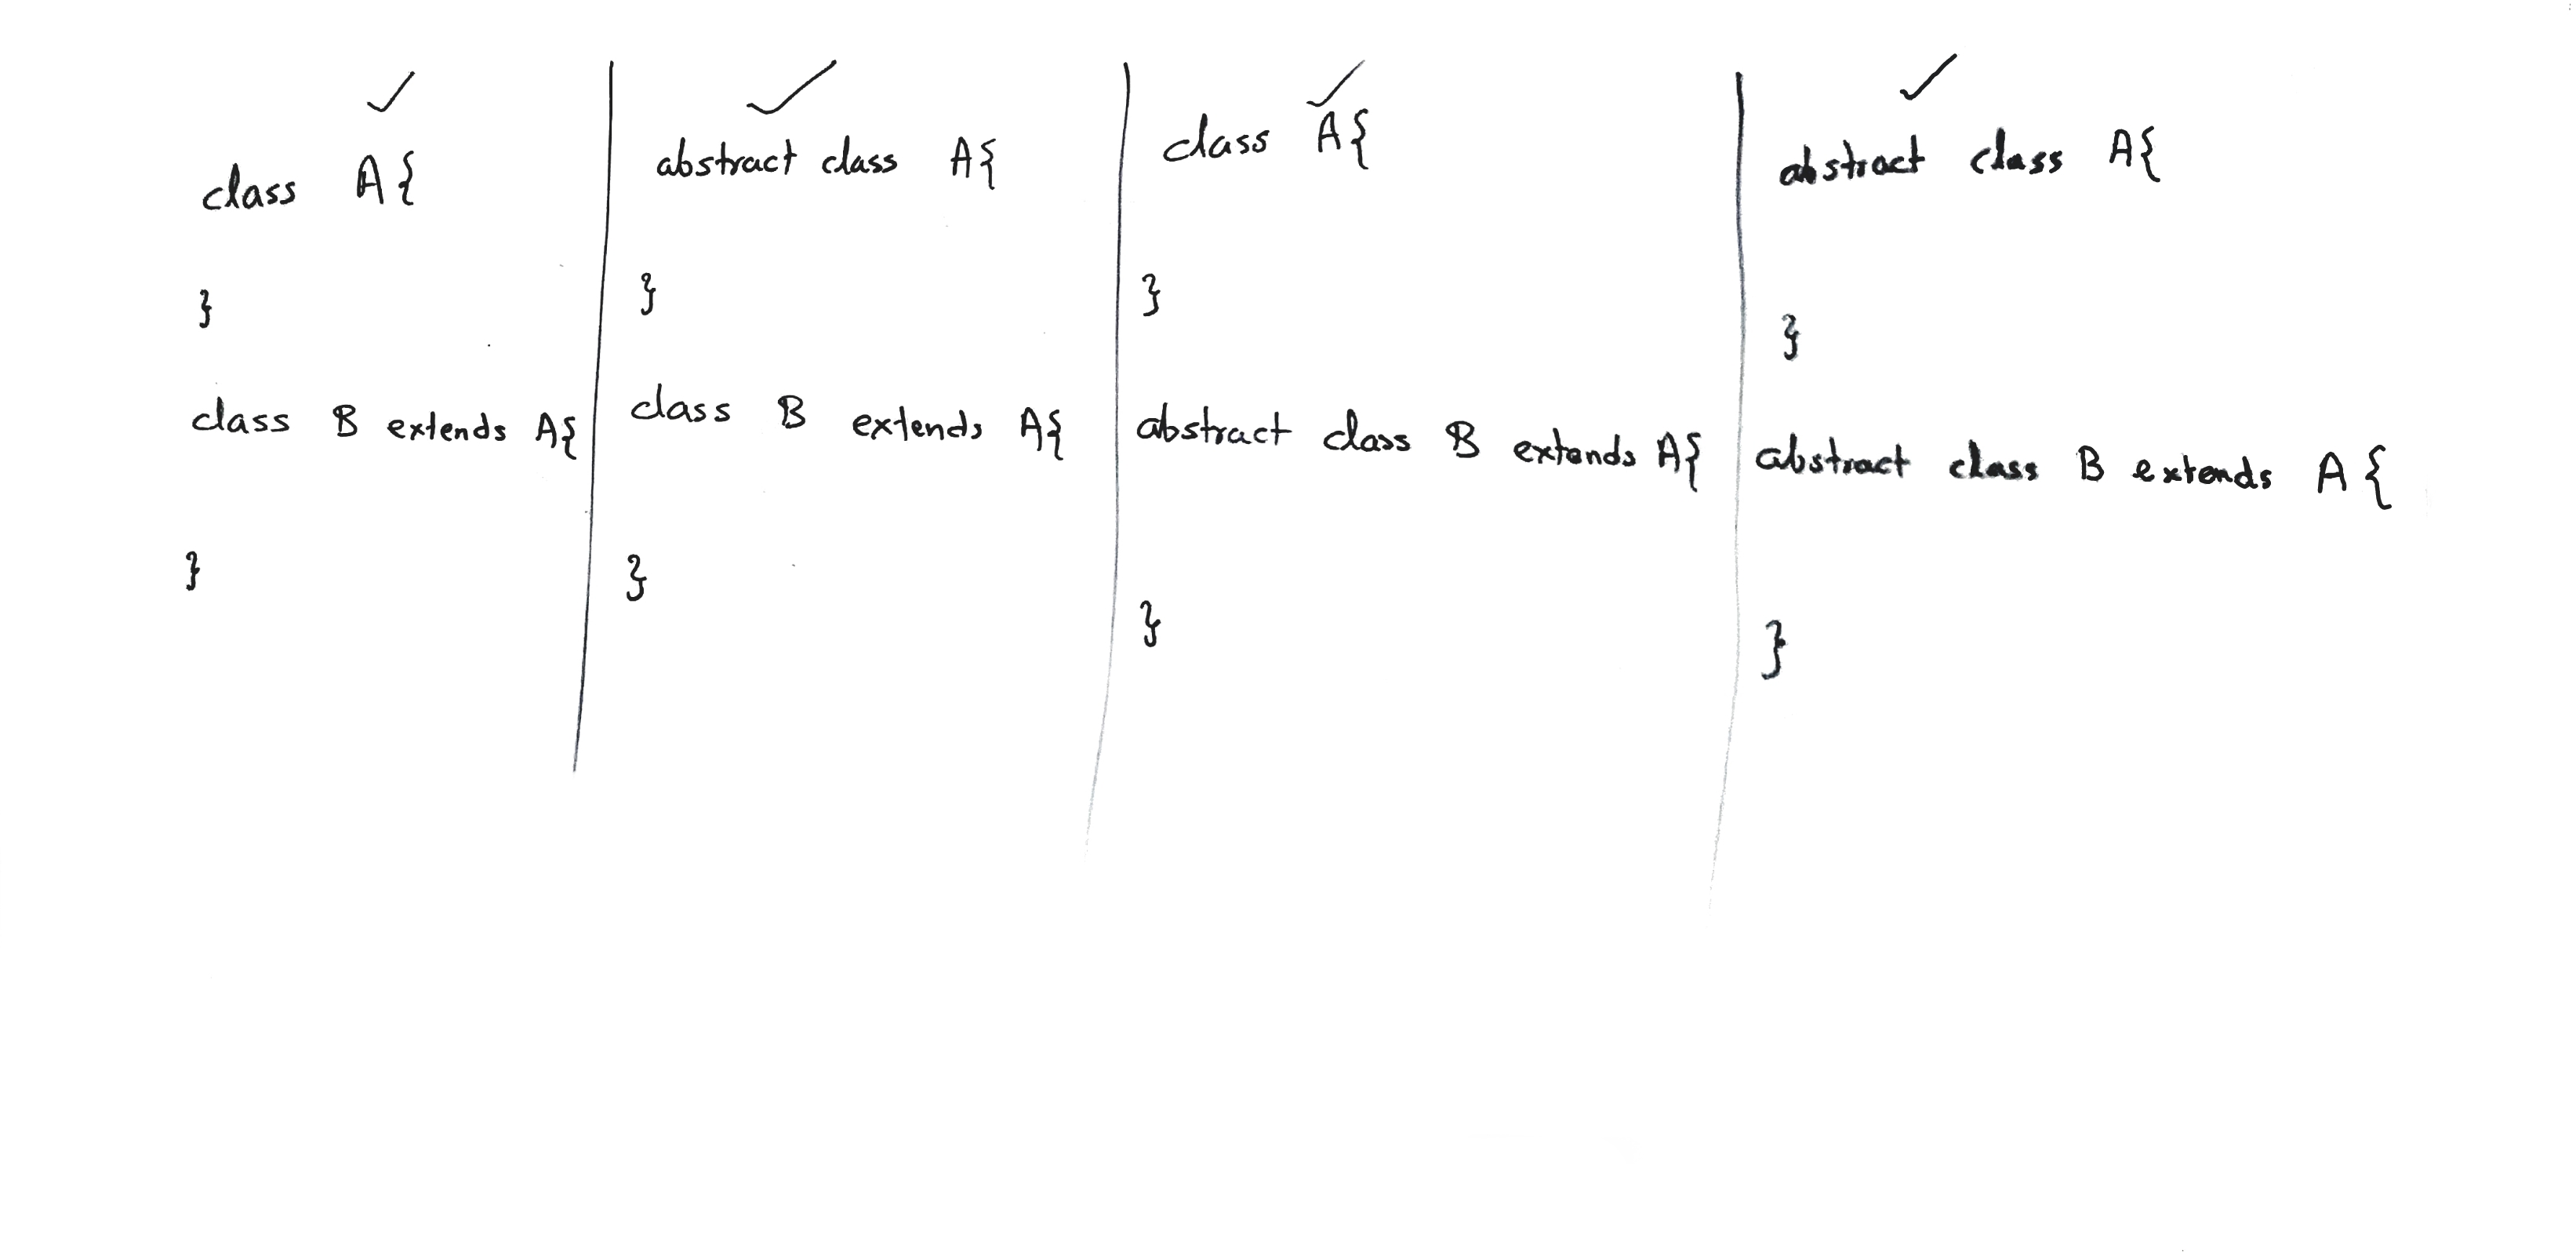 class A{
}
class B extends A{
}
abstract class A{
}
class B extends A{
}
class A{
}
abstract class B extends A{
}
abstract class A{
}
abstract class B extends A{
}